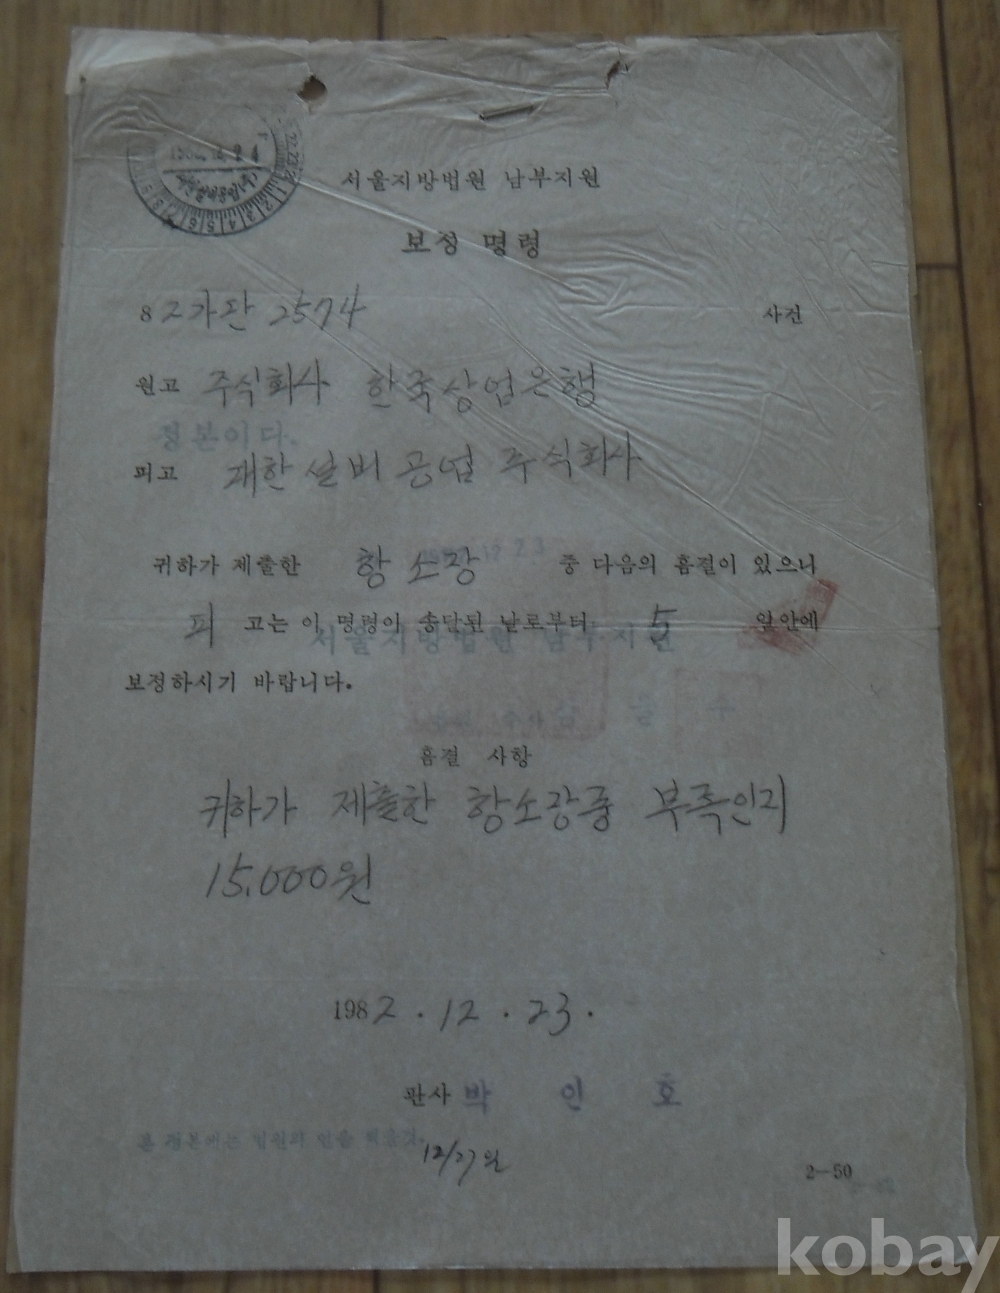 서울지방법원 남부지원
보정 명령
82가단 2574 사건
원고 주식회사 한국상업은행
정본이다.
피고 대한설비공업 주식회사
귀하가 제출한 항소장 중 다음의 흠결이 있으나
피 고는 이 명령이 송달된 날로부터 5 일안에
서울지방법원 남부지원
보정하시기 바랍니다.
흠결 사항
귀하가 제출한 항소장중 부족인지
15,000원
1982. 12. 23.
판사 박 인 호
12/27
2-50
kobay